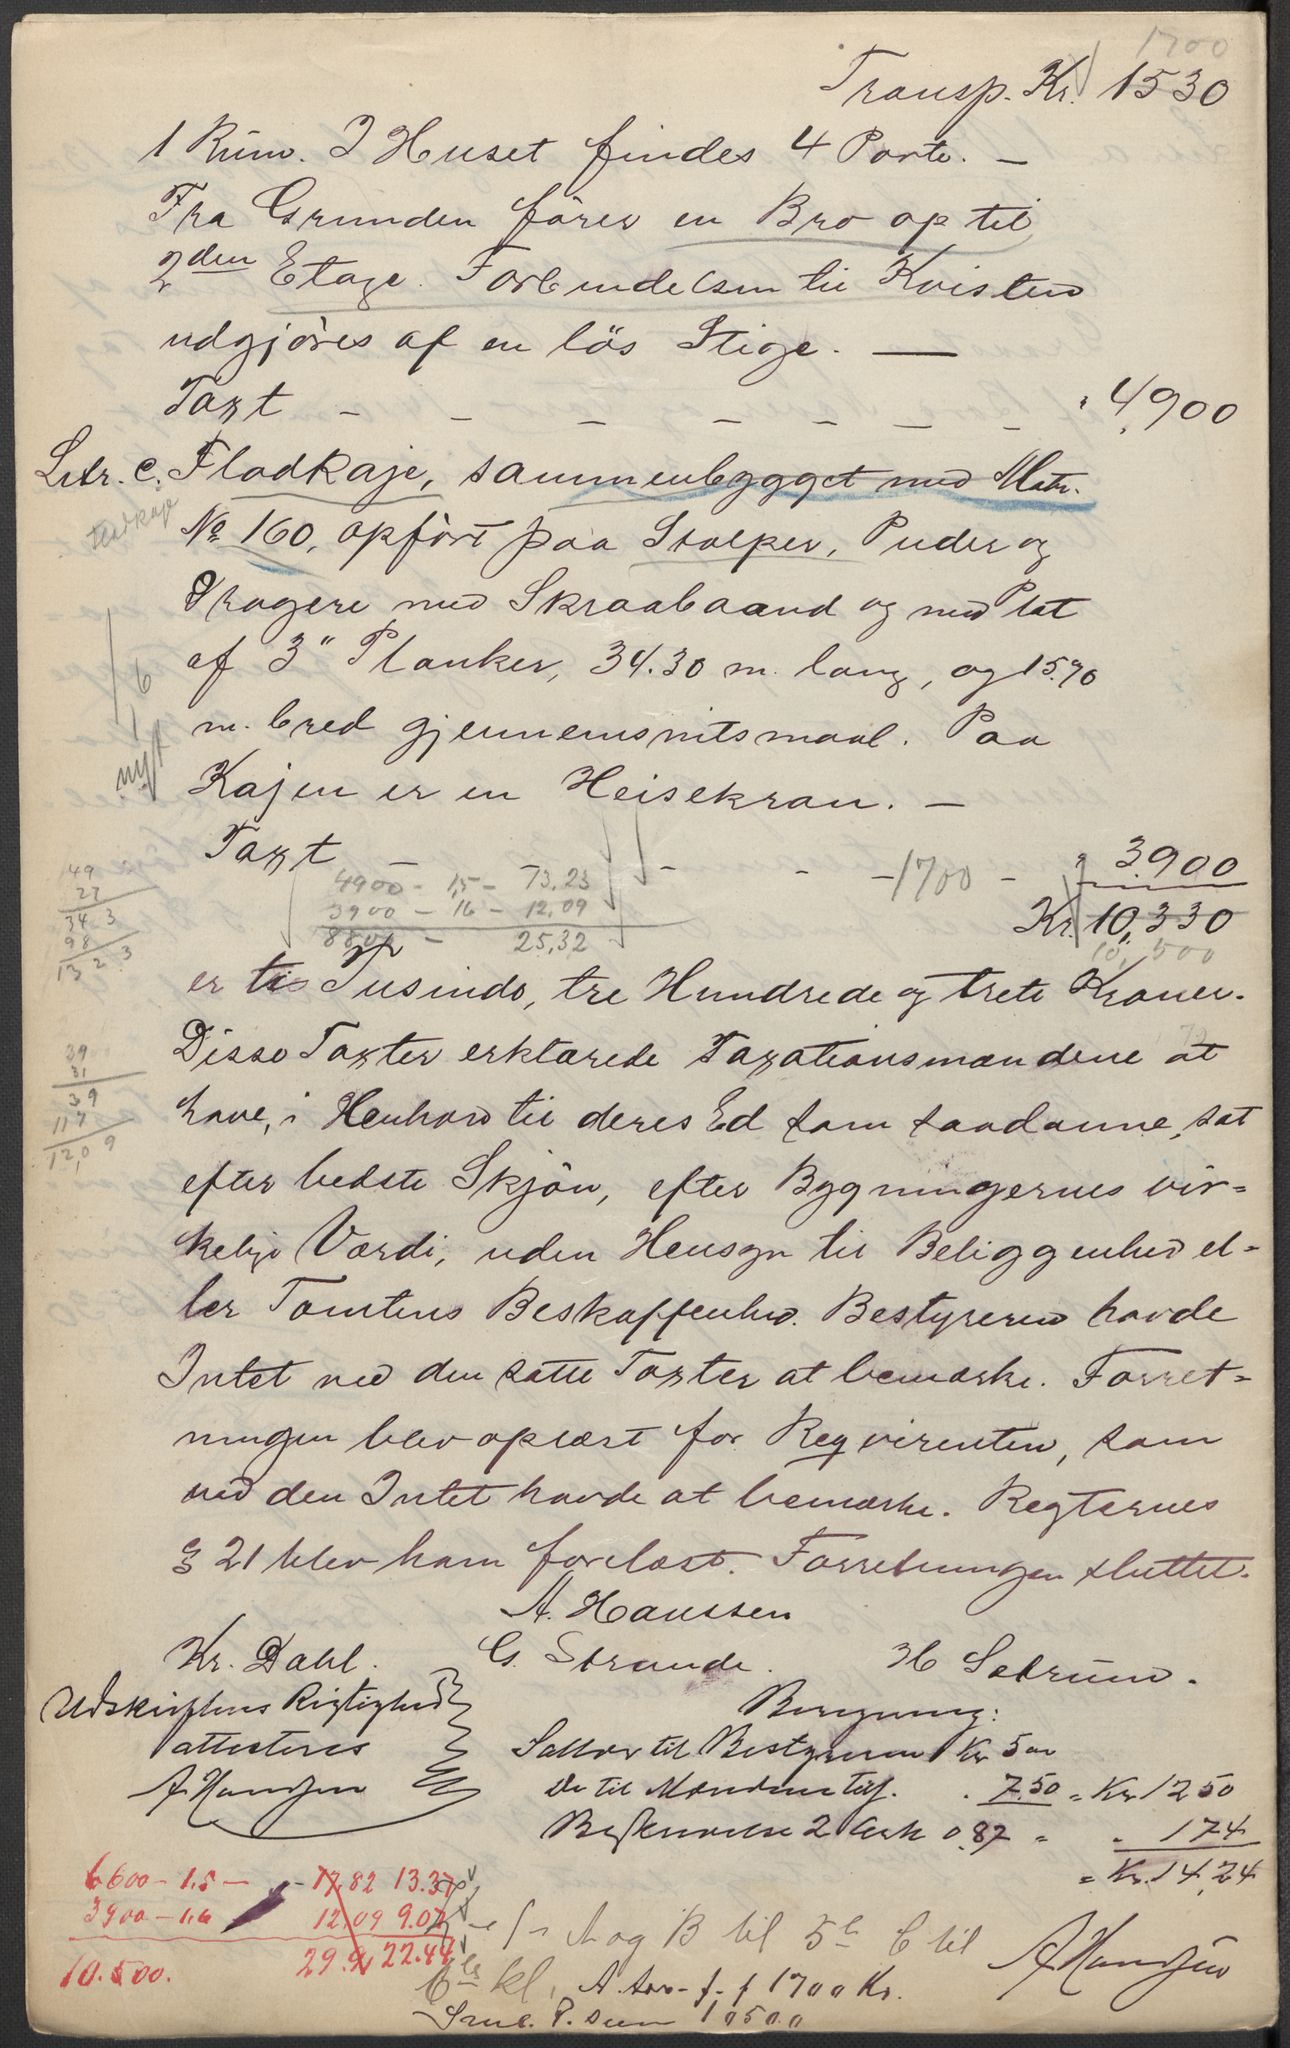 1700
Transp. Kr. 1530
1 Rum. I Huset findes 4 Porte. —
Fra Grunden förer en Bro op til
2den Etage. Forbindelsen til Kvisten
udgjöres af en lös Stige. —
Taxt — — — — — — — " 4,900
Litr. C. Flodkaje, sammenbygget med Matr.
No 160, opfört paa Stolper, Puder og
Dragere med Skraabaand og med Plat
af 3" Planker, 34.30 m. lang, og 15.70
m. bred gjennemsnitsmaal. Paa
Kajen er en Heisekran. —
Taxt — — — — 1700 — " 3,900
4900 - 1,5 - 73.23
3900 - 16 - 12.09
8800 - 25,32
Kr. 10,330
10,500
er ti Tusinde, tre Hundrede og treti Kroner.
Disse Taxter erklærede Taxationsmændene at
have, i Henhold til deres Ed som saadanne, sat
efter bedste Skjön, efter Bygningernes vir-
kelige Værdi, uden Hensyn til Beliggenhed el-
ler Tomtens Beskaffenhed. Bestyreren havde
Intet ved den satte Taxter at bemærke. Forret-
ningen blev oplæst for Reqvirenten, som
ved den Intet havde at bemærke. Reglernes
§ 21 blev ham forelæst. Forretningen sluttet.
A. Hanssen
Kr. Dahl. G. Strande. H Sætrum.
Udskriftens Rigtighed
attesteres
A Hanssen
Beregning:
Sallær til Bestyreren Kr 5 00
Do til Mændene tils. " 7.50 = Kr. 12 50
Beskrivelse 2 Ark 0.87 = " 1 74
= Kr. 14,24
A Hanssen
6600 - 1.5 - 17.82 13.37
3900 - 1.6 12.09 9.07
10.500. 22.44
A og B til 5te C til
6te kl. A. 1700 Kr.
P. sum 10500
6
nyt
49
27
34 3
98
13 2 3
39
31
39
117
12,0 9